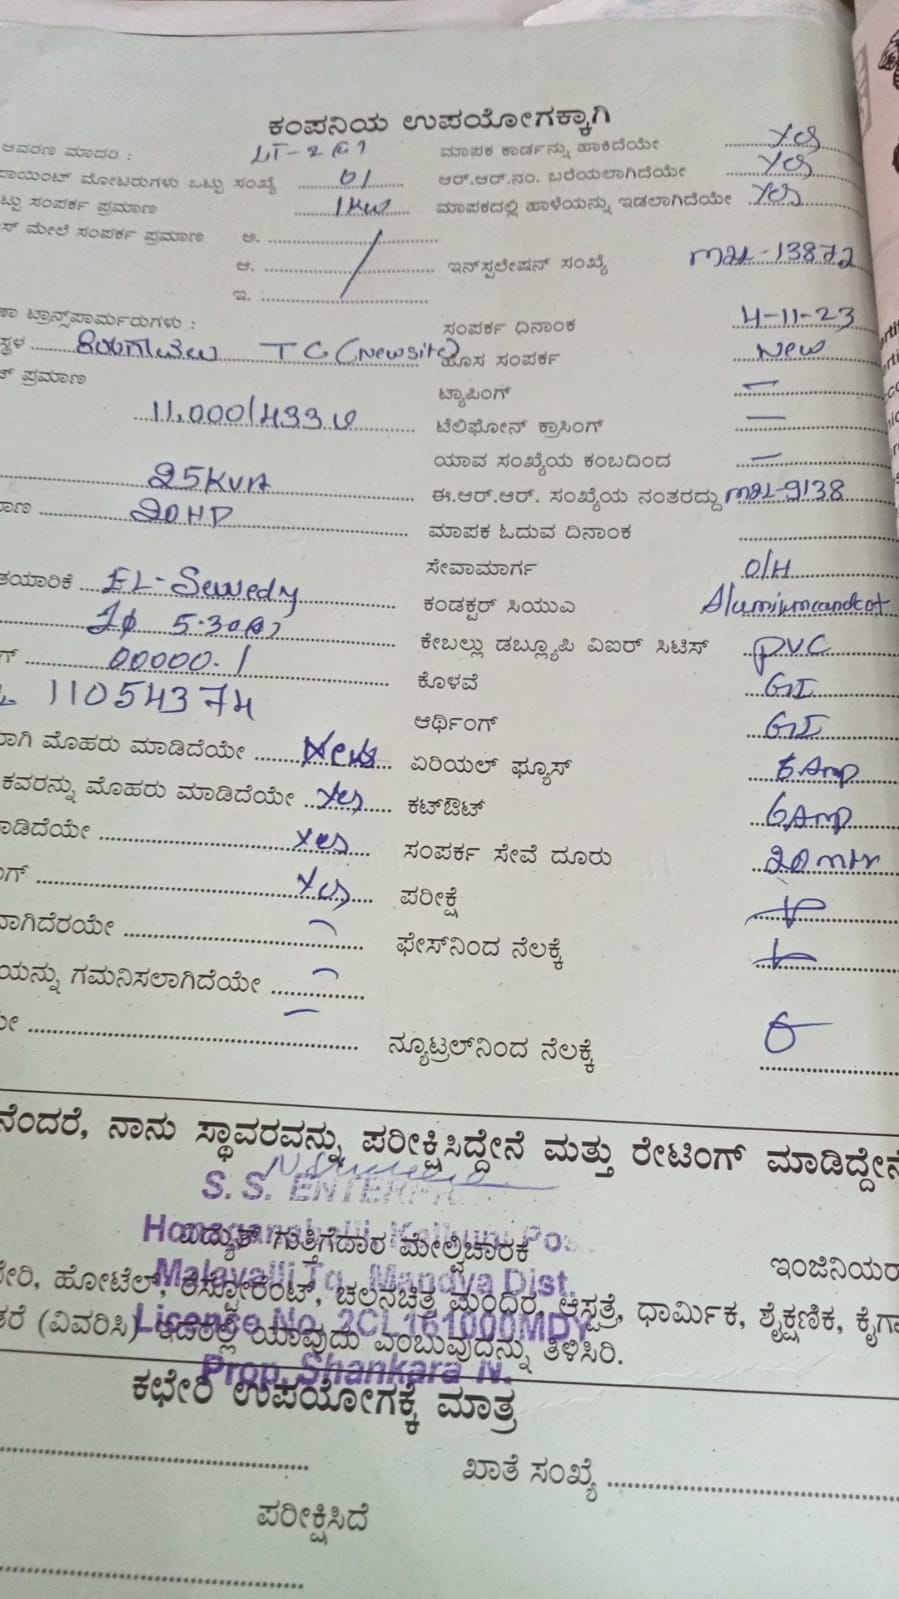 ಕಂಪನಿಯ ಉಪಯೋಗಕ್ಕಾಗಿ
ಆವರಣ ಮಾದರಿ : LT-2(a) ಮಾಪಕ ಕಾರ್ಡನ್ನು ಹಾಕಿದೆಯೇ Yes
ಪಾಯಿಂಟ್ ಮೋಟರುಗಳು ಒಟ್ಟು ಸಂಖ್ಯೆ 01 ಆರ್.ಆರ್.ನಂ. ಬರೆಯಲಾಗಿದೆಯೇ Yes
ಟ್ಟು ಸಂಪರ್ಕ ಪ್ರಮಾಣ 1Kw ಮಾಪಕದಲ್ಲಿ ಹಾಳೆಯನ್ನು ಇಡಲಾಗಿದೆಯೇ Yes
ಸ್ ಮೇಲೆ ಸಂಪರ್ಕ ಪ್ರಮಾಣ ಅ.
ಆ. ಇನ್‌ಸ್ಟಲೇಷನ್ ಸಂಖ್ಯೆ ML-13872
ಇ.
ಟ್ರಾನ್ಸ್‌ಫಾರ್ಮರುಗಳು : ಸಂಪರ್ಕ ದಿನಾಂಕ 4-11-23
ಸ್ಥಳ TC (New site) ಹೊಸ ಸಂಪರ್ಕ New
ಪ್ರಮಾಣ ಟ್ಯಾಪಿಂಗ್ —
11,000/433 V ಟೆಲಿಫೋನ್ ಕ್ರಾಸಿಂಗ್ —
ಯಾವ ಸಂಖ್ಯೆಯ ಕಂಬದಿಂದ —
25KVA ಈ.ಆರ್.ಆರ್. ಸಂಖ್ಯೆಯ ನಂತರದ್ದು ML-9138
ಮಾಣ 20HP ಮಾಪಕ ಓದುವ ದಿನಾಂಕ
ಸೇವಾಮಾರ್ಗ O/H
ತಯಾರಿಕೆ EL-Sewedy ಕಂಡಕ್ಟರ್ ಸಿಯುಎ
1φ 5-30(A) ಕೇಬಲ್ಲು ಡಬ್ಲ್ಯೂಪಿ ವಿಐರ್ ಸಿಟಿಸ್ PVC
ಗ್ 00000.1 ಕೊಳವೆ GI
11054374 ಆರ್ಥಿಂಗ್ GI
ಾಗಿ ಮೊಹರು ಮಾಡಿದೆಯೇ ಏರಿಯಲ್ ಫ್ಯೂಸ್ 6 Amp
ಕವರನ್ನು ಮೊಹರು ಮಾಡಿದೆಯೇ Yes ಕಟ್‌ಔಟ್ 6Amp
ಮಾಡಿದೆಯೇ Yes ಸಂಪರ್ಕ ಸೇವೆ ದೂರು 20 mtr
ಗ್ Yes ಪರೀಕ್ಷೆ
ವಾಗಿದೆರಯೇ ಫೇಸ್‌ನಿಂದ ನೆಲಕ್ಕೆ
ಯನ್ನು ಗಮನಿಸಲಾಗಿದೆಯೇ
ನ್ಯೂಟ್ರಲ್‌ನಿಂದ ನೆಲಕ್ಕೆ
ನೆಂದರೆ, ನಾನು ಸ್ಥಾವರವನ್ನು ಪರೀಕ್ಷಿಸಿದ್ದೇನೆ ಮತ್ತು ರೇಟಿಂಗ್ ಮಾಡಿದ್ದೇನೆ
S. S. ENTERPR
ವಿದ್ಯುತ್ ಗುತ್ತಿಗೆದಾರ ಮೇಲ್ವಿಚಾರಕ ಇಂಜಿನಿಯರ
Malavalli Tq. Mandya Dist.
ೇರಿ, ಹೋಟೆಲ್, ರೆಸ್ಟೋರೆಂಟ್, ಚಲನಚಿತ್ರ ಮಂದಿರ, ಆಸ್ಪತ್ರೆ, ಧಾರ್ಮಿಕ, ಶೈಕ್ಷಣಿಕ, ಕೈಗಾ
Licence No. 2CL161000MDY
ತರೆ (ವಿವರಿಸಿ) ಇದರಲ್ಲಿ ಯಾವುದು ಎಂಬುವುದನ್ನು ತಿಳಿಸಿರಿ.
Prop. Shankara N.
ಕಛೇರಿ ಉಪಯೋಗಕ್ಕೆ ಮಾತ್ರ
ಖಾತೆ ಸಂಖ್ಯೆ
ಪರೀಕ್ಷಿಸಿದೆ